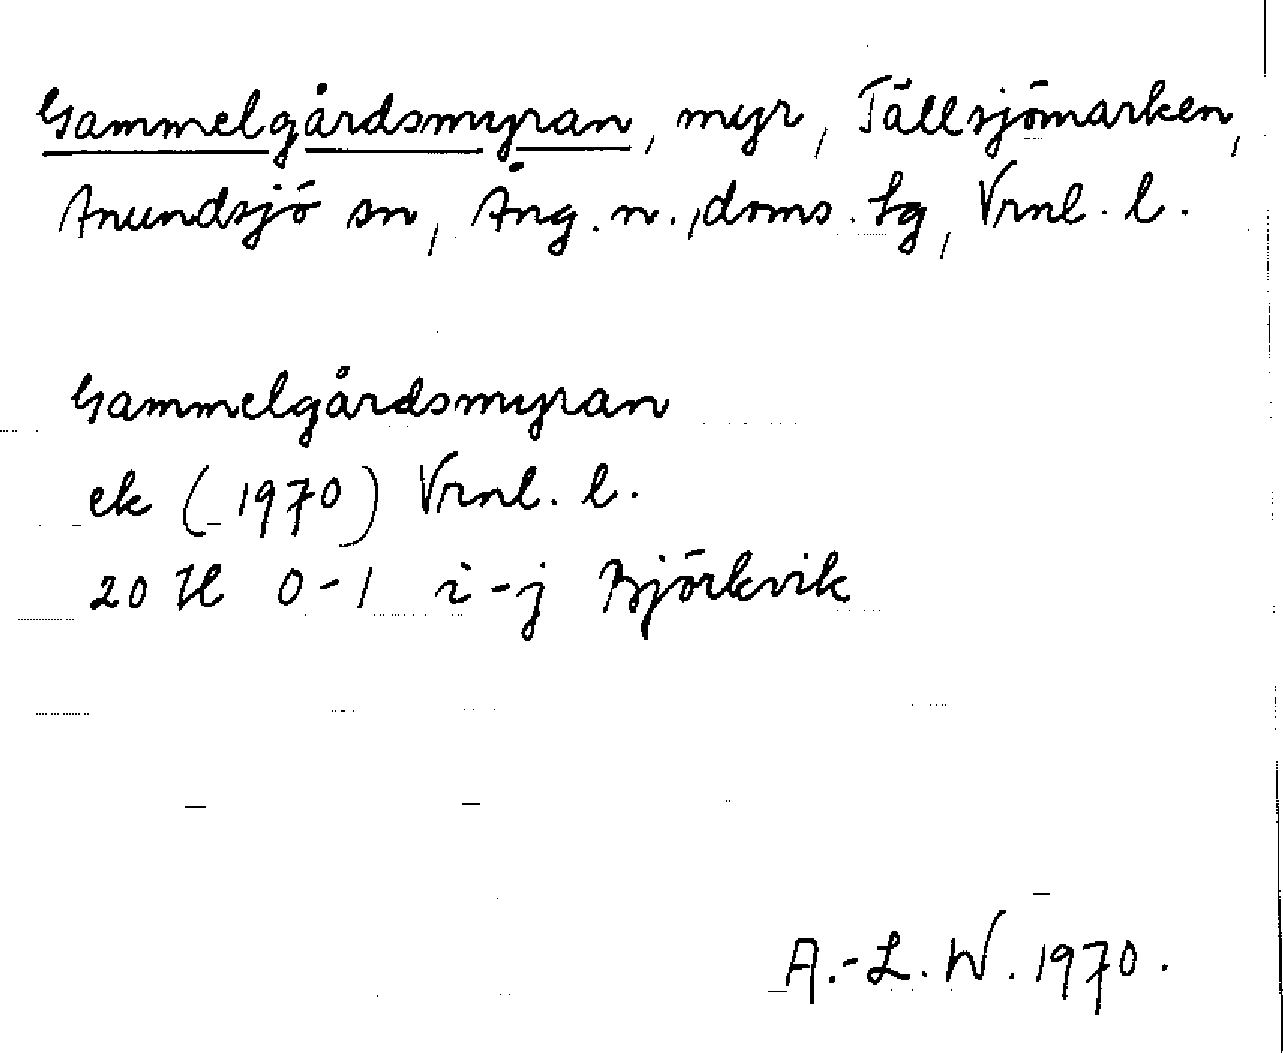 Gammelgårdsmyran, myr, Tällsjömarken,
Anundsjö sn, Ång. n., doms. Lg, Vrnl. l.
Gammelgårdsmyran
ek (1970) Vrnl. l.
20 H 0-1 i-j Björkvik
A.-L. W. 1970.